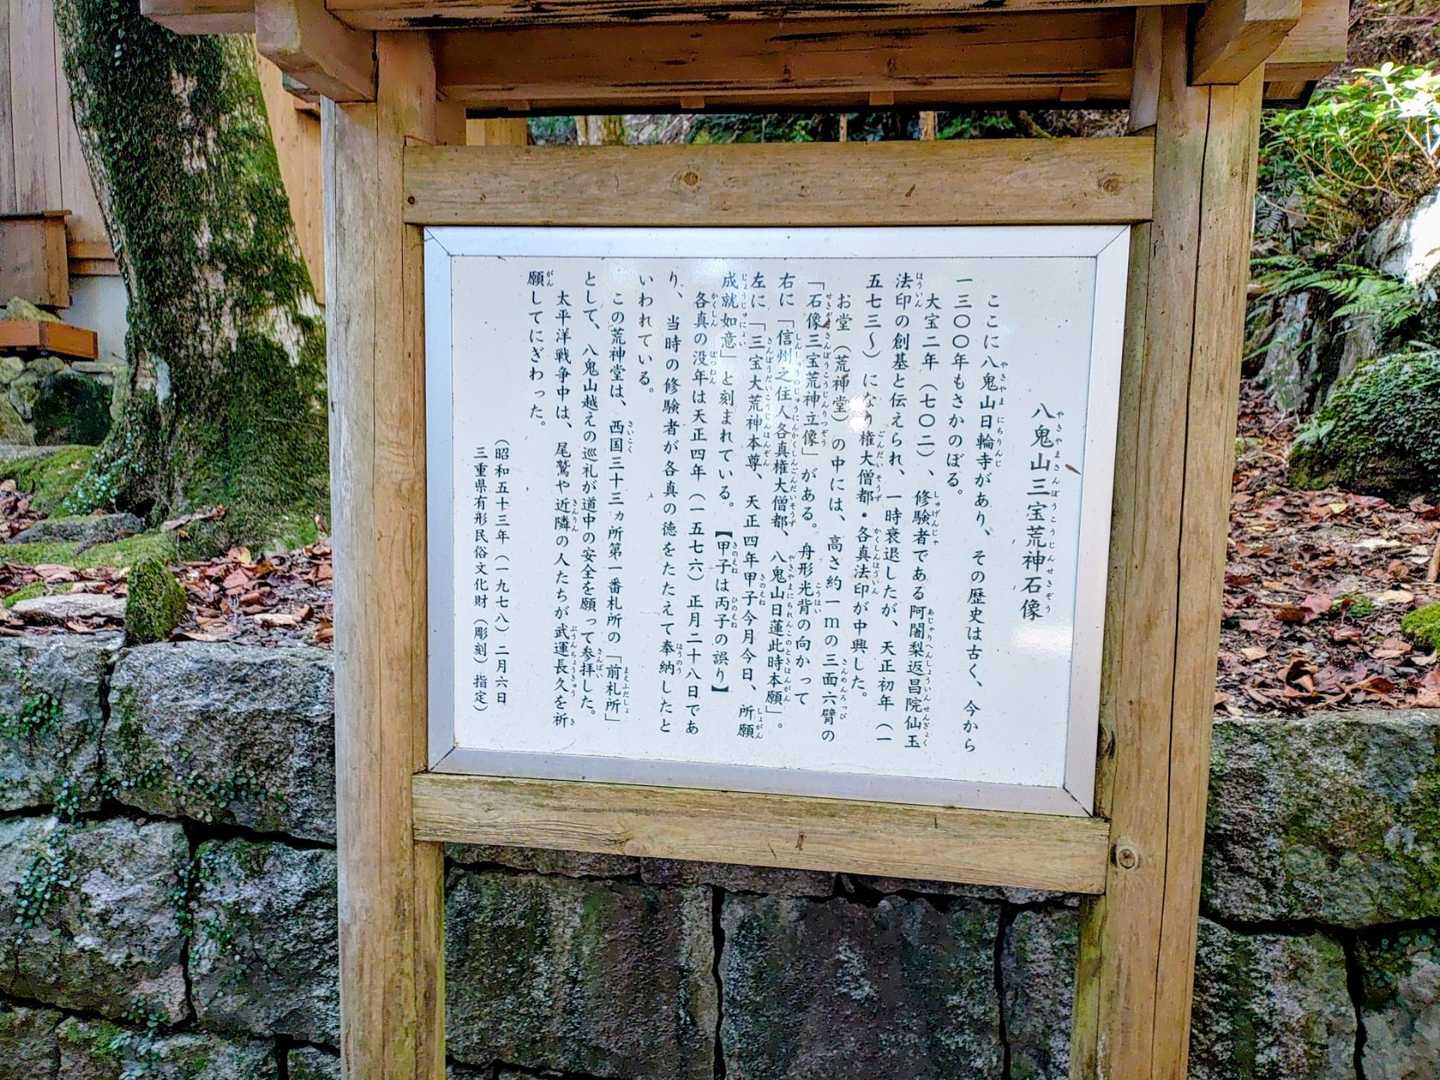 八鬼山三宝荒神石像
ここに八鬼山日輪寺があり、その歴史は古く、今から
一三〇〇年もさかのぼる。
大宝二年(七〇二)、修験者である阿闍梨返昌院仙玉
法印の創基と伝えられ、一時衰退したが、天正初年(一
五七三〜)になり権大僧都・各真法印が中興した。
お堂(荒神堂)の中には、高さ約一mの三面六臂の
「石像三宝荒神立像」がある。舟形光背の向かって
右に「信州之住人各真権大僧都、八鬼山日蓮此時本願」。
左に「三宝大荒神本尊、天正四年甲子今月今日、所願
成就如意」と刻まれている。【甲子は丙子の誤り】
各真の没年は天正四年(一五七六)正月二十八日であ
り、当時の修験者が各真の徳をたたえて奉納したと
いわれている。
この荒神堂は、西国三十三ヵ所第一番札所の「前札所」
として、八鬼山越えの巡礼が道中の安全を願って参拝した。
太平洋戦争中は、尾鷲や近隣の人たちが武運長久を祈
願してにぎわった。
(昭和五十三年(一九七八)二月六日
三重県有形民俗文化財(彫刻)指定)